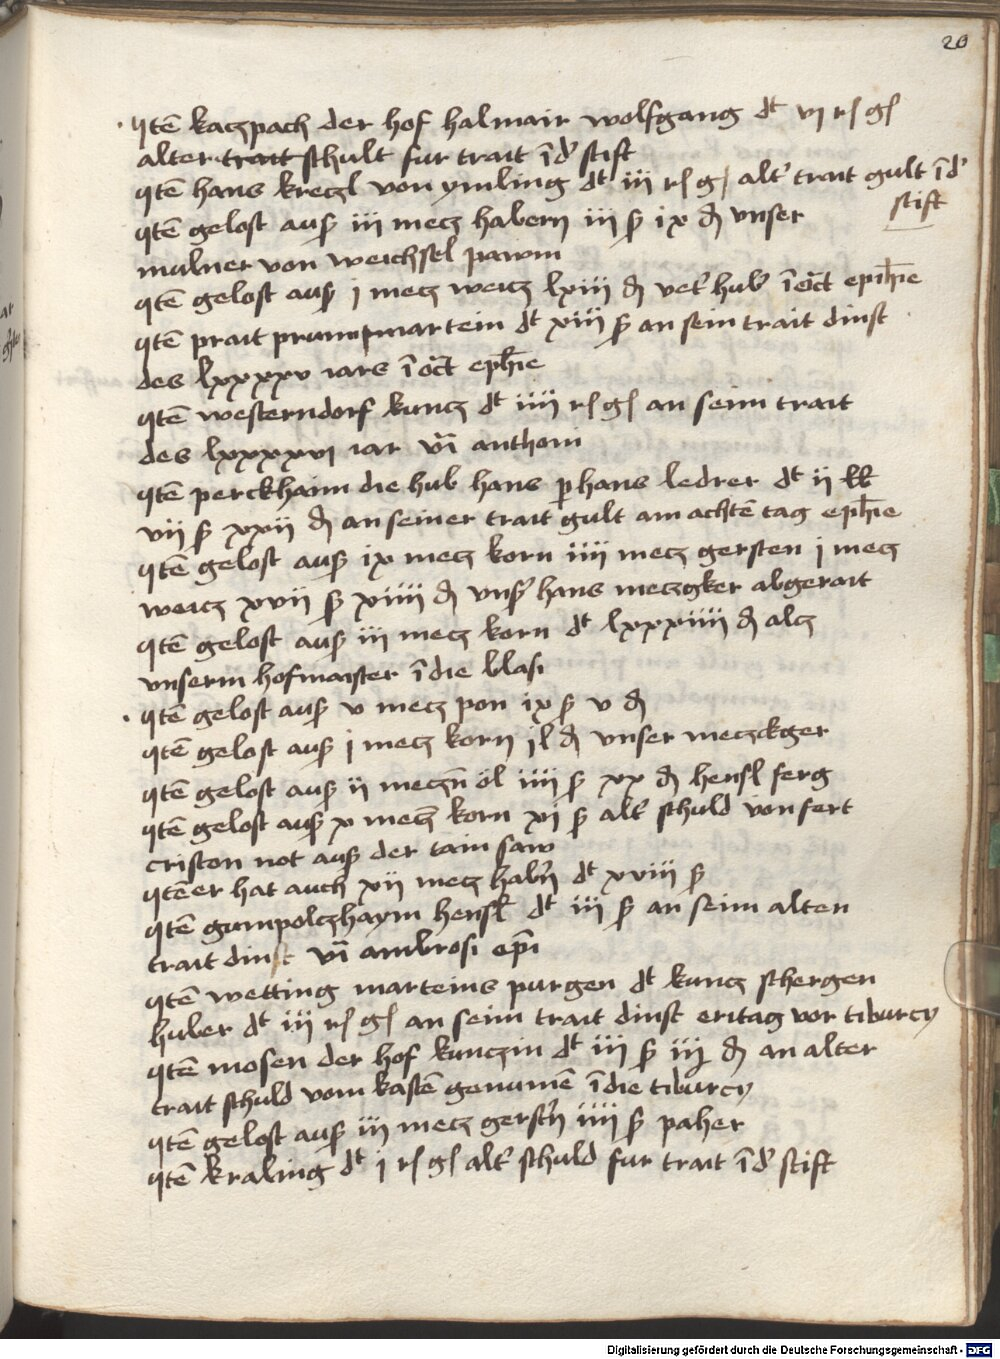 20
Itē kaczpach der hof halmair wolfgang dt vi rl gl
alter trait schult fur trait ī d' stift
Itē hans kreczl von ymling dt iii rl gl alt' trait gult ī d'
stift
Itē gelost auß iii mecz habern iii ß ix ₰ vnser
mulner von weichsel pawm
Itē gelost auß j mecz weicz lxiii ₰ vet' hub' ī oct epiphīe
Itē prait prunn martein dt xiii ß an sein trait dinst
des lxxxxv iars ī oct ephīe
Itē westerndorf kuncz dt iiii rl gl an seim trait
des lxxxxvi iar vī anthoni
Itē perckhaim die hub hans p hans ledrer dt ii lb
vii ß xxii ₰ an seiner trait gult am achtē tag ephīe
Itē gelost auß ix mecz korn iiii mecz gersten j mecz
weicz xvii ß xiiii ₰ vnß' hans meczgker abgerait
Itē gelost auß iii mecz korn dt lxxxiiii ₰ alcz
vnserm hofmaister ī die blasi
Itē gelost auß v mecz pon ix ß v ₰
Itē gelost auß j mecz korn jl ₰ vnser meczckger
Itē gelost auß ii meczn öl iiii ß xx ₰ hensl ferg
Itē gelost auß x mecz korn xi ß alt' schuld von fert
criston not auß der tain saw
Itē er hat auch xii mecz habn dt xviii ß
Itē gumpolczhaym hensl dt iii ß an seim alten
trait dinst vī ambrosi epī
Itē wetting marteins purgen dt kuncz schergen
huber dt iii rl gl an seim trait dinst eritag vor tiburcy
Itē mosen der hof kunczin dt iii ß iij ₰ an alter
trait schuld vom kastē genumē ī die tiburcy
Itē gelost auß iii mecz gerstn iiii ß paher
Itē kraling dt i rl gl alt' schuld fur trait ī d' stift
Digitalisierung gefördert durch die Deutsche Forschungsgemeinschaft - DFG